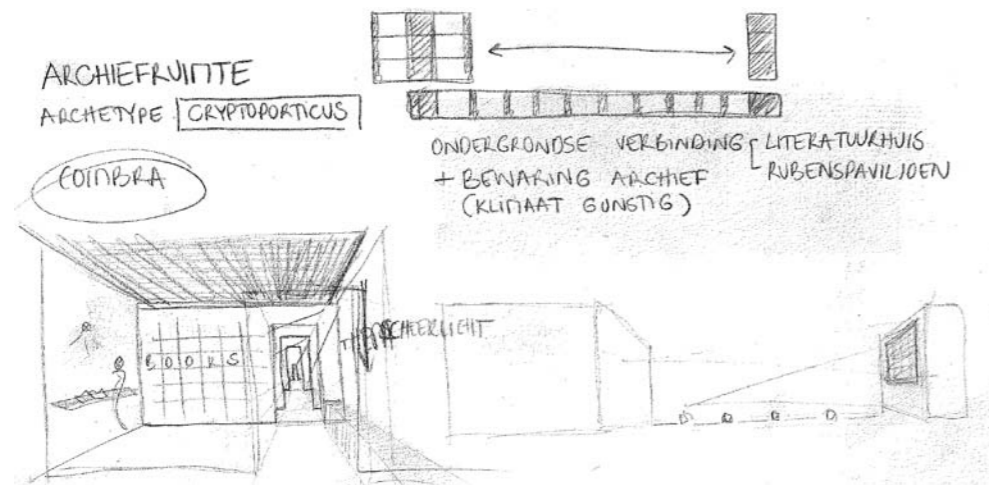 ARCHIEFRUIMTE
ARCHETYPE CRYPTOPORTICUS
COIMBRA
ONDERGRONDSE VERBINDING
LITERATUURHUIS
RUBENSPAVILJOEN
+ BEWARING ARCHIEF
(KLIMAAT GUNSTIG)
BOOKS
SCHEERLICHT